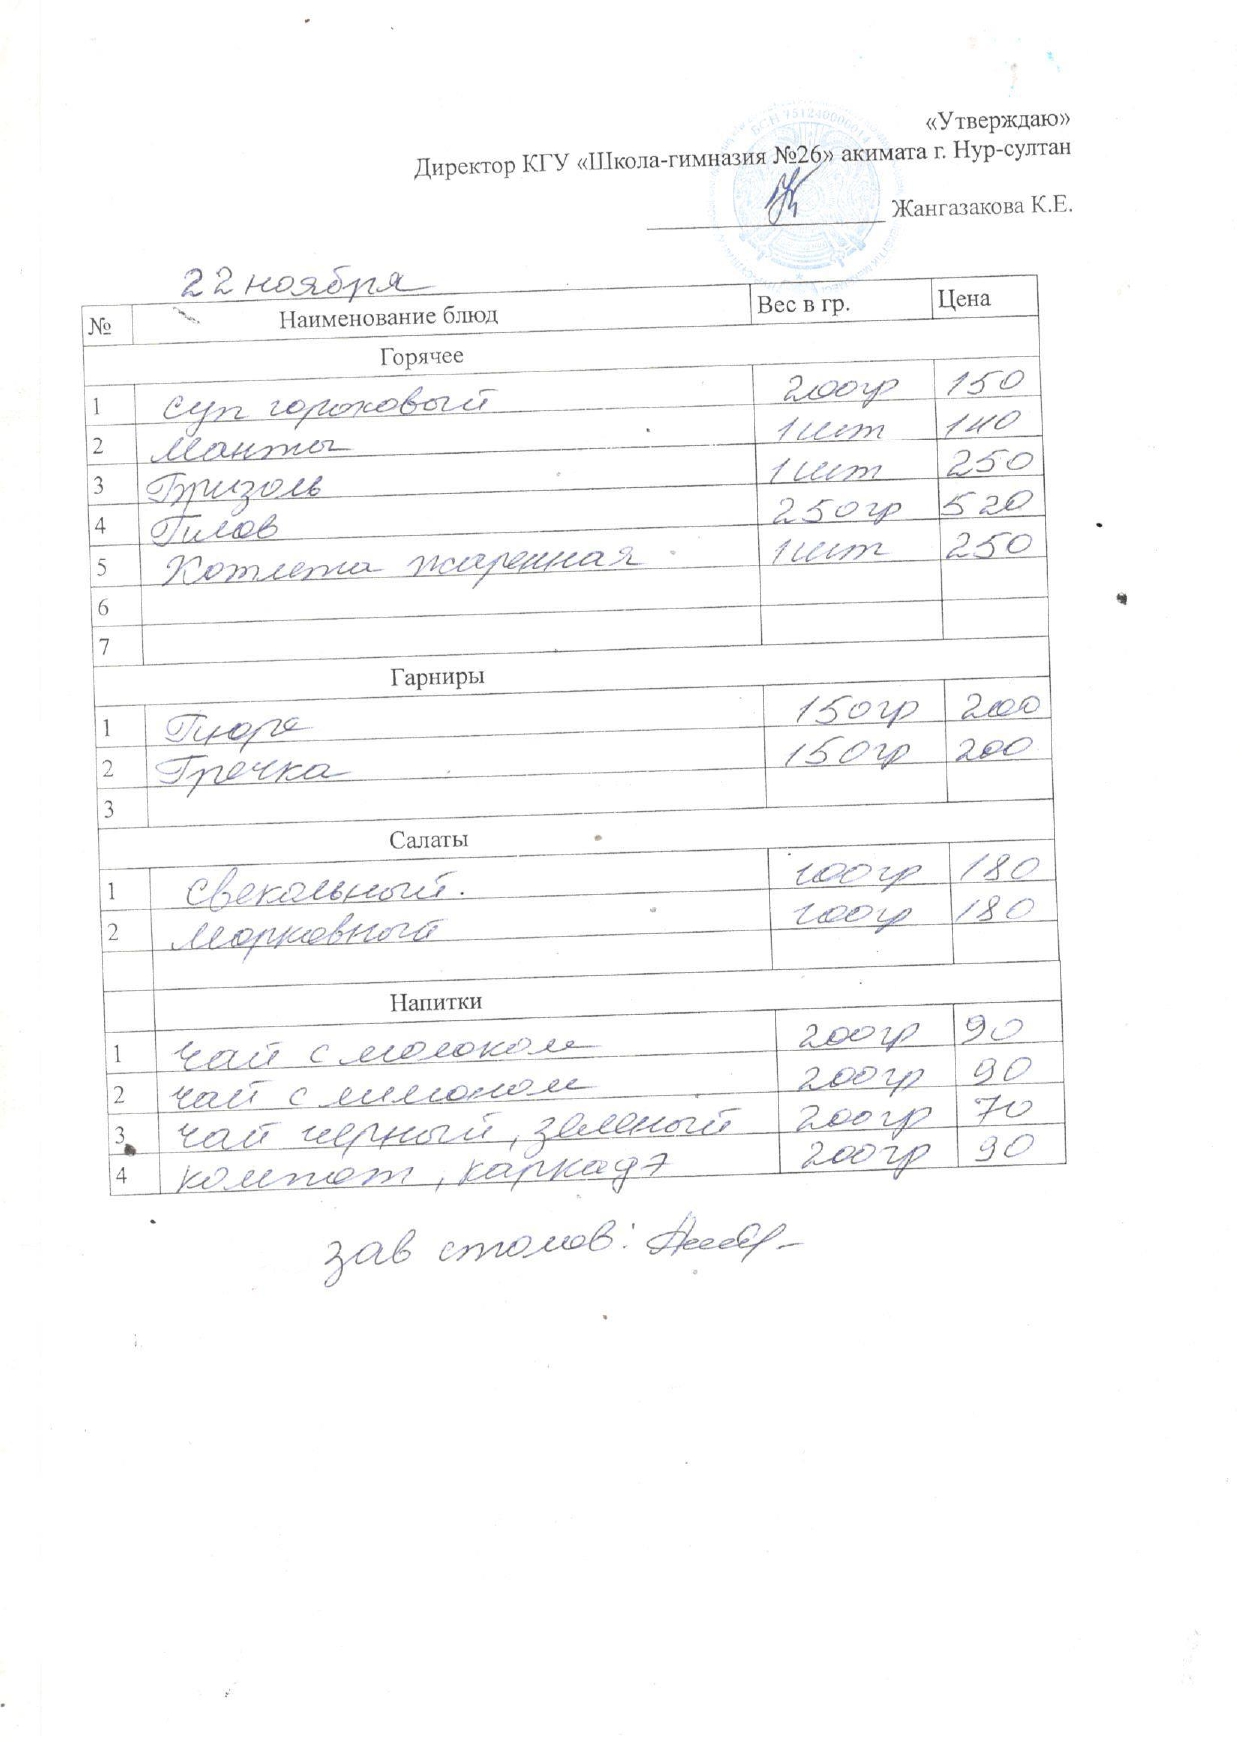 «Утверждаю»
Директор КГУ «Школа-гимназия №26» акимата г. Нур-султан
Жангазакова К.Е.
22 ноября
№ Наименование блюд Вес в гр. Цена
Горячее
1 суп гороховый 200гр 150
2 Манты 1шт 140
3 Бризоль 1шт 250
4 Плов 250гр 520
5 Котлета жаренная 1шт 250
6
7
Гарниры
1 Пюре 150гр 200
2 Гречка 150гр 200
3
Салаты
1 Свекольный. 100гр 180
2 Морковный 100гр 180
Напитки
1 чай с молоком 200гр 90
2 чай с лимоном 200гр 90
3 чай черный, зеленый 200гр 70
4 компот, каркадэ 200гр 90
зав столов: